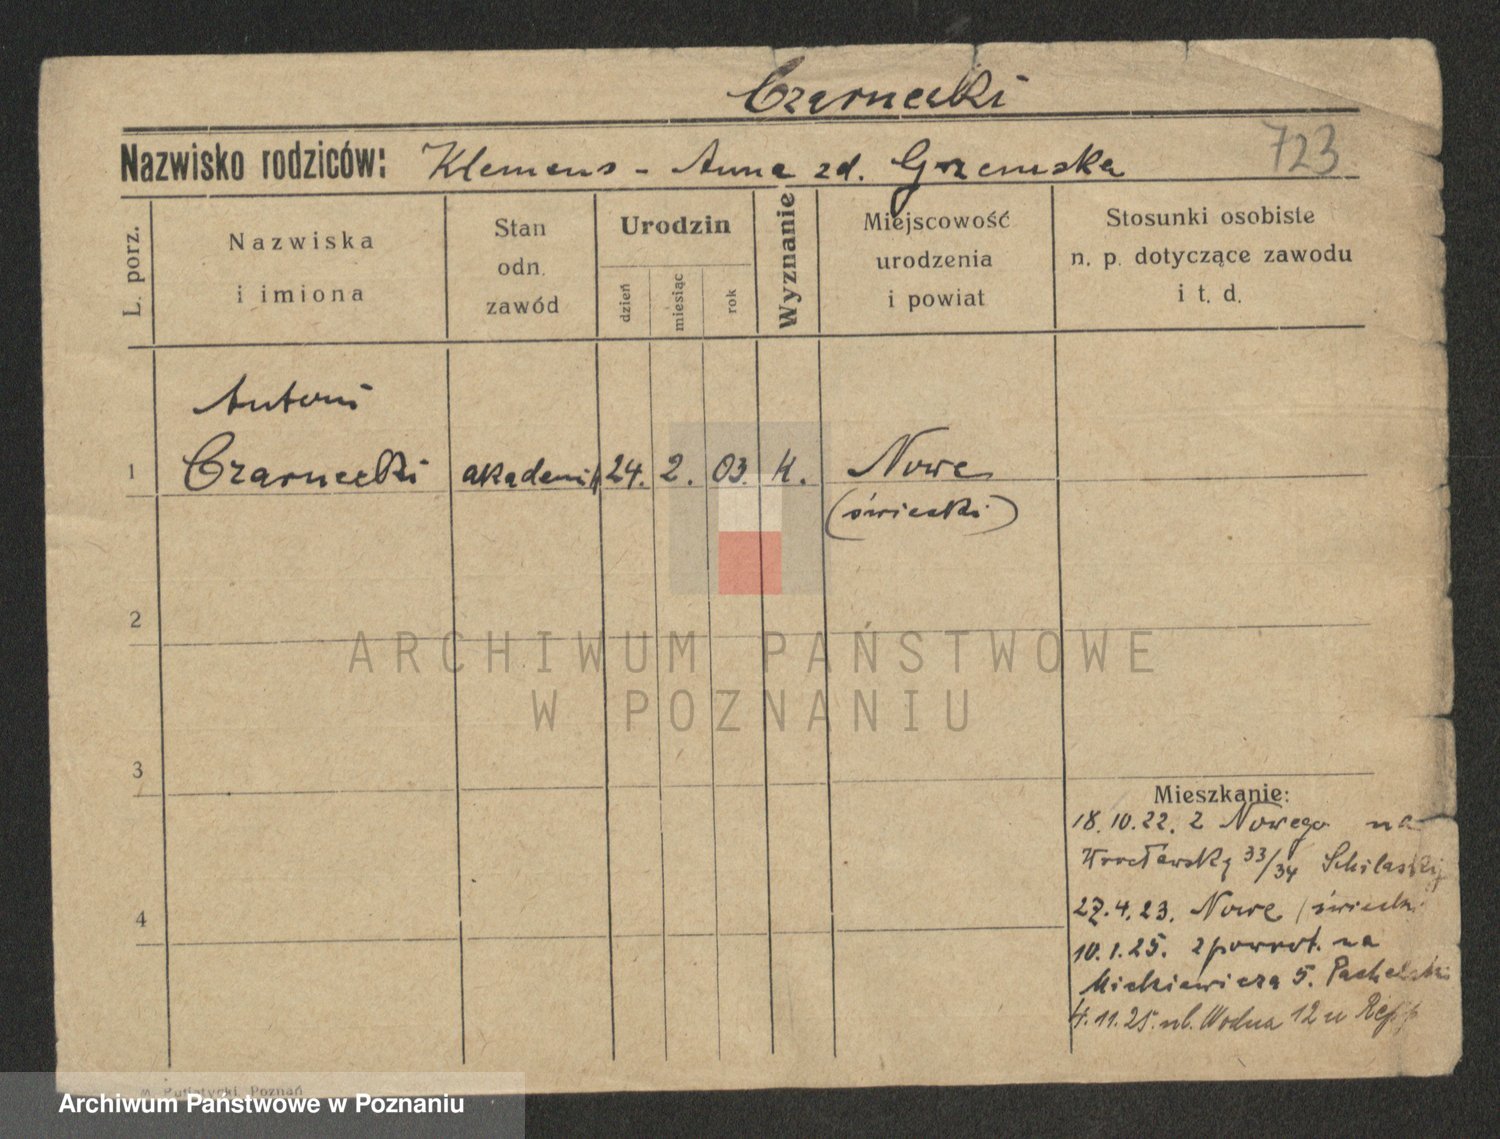 Czarnecki
Nazwisko rodziców: Klemens - Anna zd. Grzemska
723
L. porz.
Nazwiska
i imiona
Stan
odn.
zawód
Urodzin
dzień
miesiąc
rok
Wyznanie
Miejscowość
urodzenia
i powiat
Stosunki osobiste
n. p. dotyczące zawodu
i t. d.
Antoni
1 Czarnecki akademik 24. 2. 03. K. Nowe
(świecki)
2
3
4
Mieszkanie:
18.10.22. z Nowego na
Wrocławską 33/34
27.4.23. Nowe /świecki
10.1.25. zpowrot. na
Mickiewicza 5.
4.11.25. ul. Wodna 12 u
ARCHIWUM PAŃSTWOWE
W POZNANIU
M. Putiatycki, Poznań
Archiwum Państwowe w Poznaniu